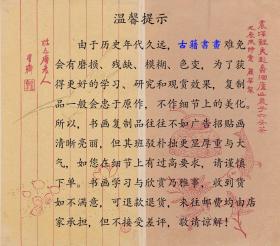 温馨提示
由于历史年代久远，古籍書畫难免
会有磨损、残缺、模糊、色变，为了获
得更好的学习、研究和观赏效果，复制
品一般会忠于原作，不作细节上的美化。
所以，书画复制品往往不如广告招贴画
清晰亮丽，但其斑驳朴拙更显厚重与大
气，如您在细节上有过高要求，请谨慎
下单。书画学习与欣赏乃雅事，收到货
如不满意，可退款退货，来往邮费均由店
家承担，但不接受差评，敬请谅解！